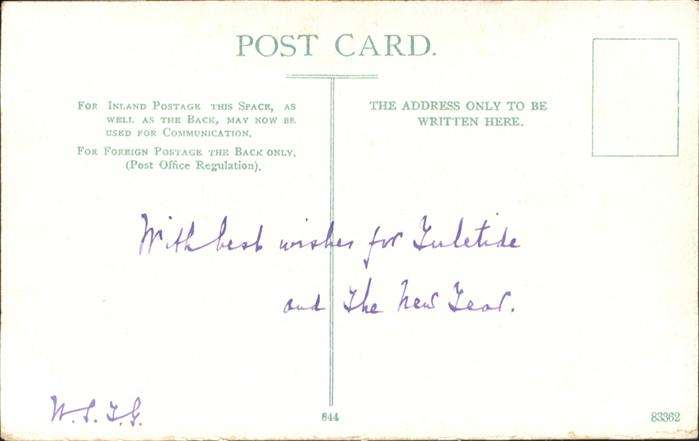 POST CARD.
FOR INLAND POSTAGE THIS SPACE, AS
WELL AS THE BACK, MAY NOW BE
USED FOR COMMUNICATION.
FOR FOREIGN POSTAGE THE BACK ONLY.
(Post Office Regulation).
THE ADDRESS ONLY TO BE
WRITTEN HERE.
With best wishes for Yuletide
and The New Year.
W.S.Y.G.
844
83362